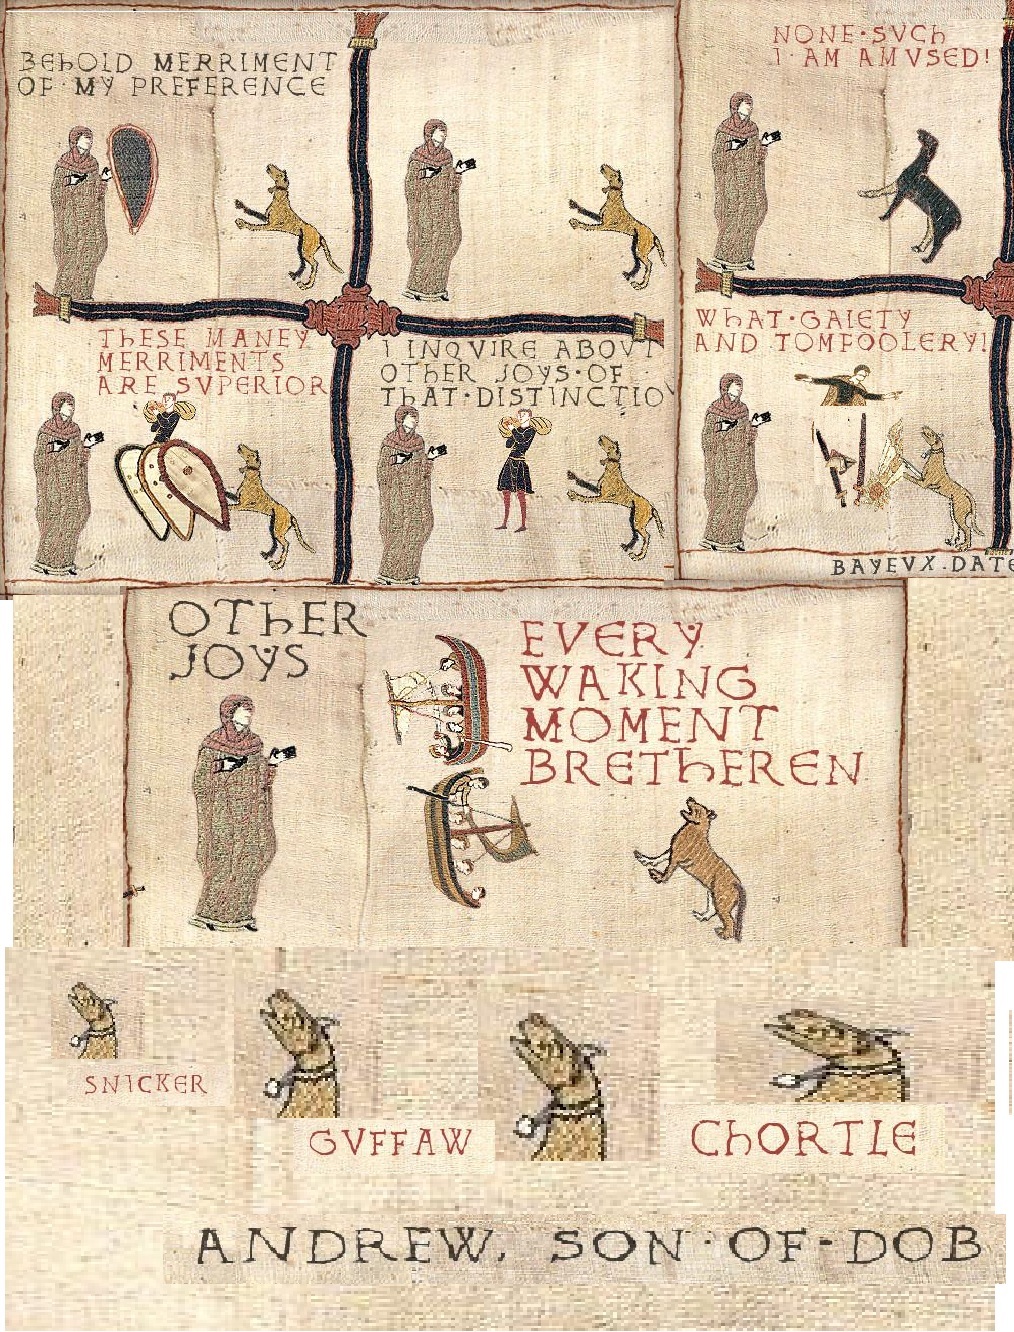 BEHOLD MERRIMENT
OF·MY PREFERENCE
THESE MANEY
MERRIMENTS
ARE SVPERIOR
I INQVIRE ABOVT
OTHER JOYS·OF
THAT·DISTINCTIO
NONE·SVCH
I·AM AMVSED!
WHAT·GAIETY
AND TOMFOOLERY!
BAYEVX.DATE
OTHER
JOYS
EVERY
WAKING
MOMENT
BRETHEREN
SNICKER
GVFFAW
CHORTLE
ANDREW, SON·OF-DOB